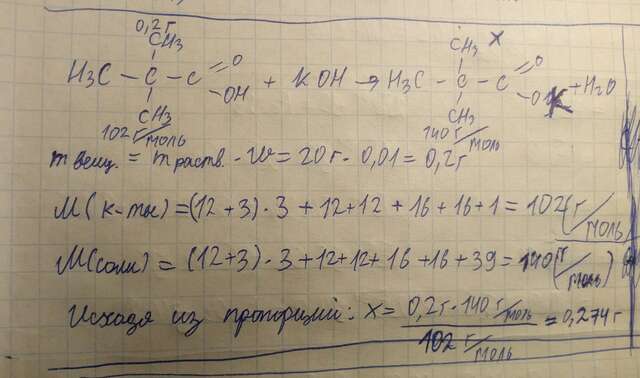 0,2 г x
CH3 CH3
H3C – C – C =O –OH + KOH → H3C – C – C =O –OK + H2O
CH3 CH3
102 г/моль 140 г/моль
m вещ. = m раств. · w = 20 г · 0,01 = 0,2 г
M(к-ты) = (12 + 3) · 3 + 12 + 12 + 16 + 16 + 1 = 102 (г/моль)
M(соли) = (12+3) · 3 + 12 + 12 + 16 + 16 + 39 = 140 (г/моль)
Исходя из пропорций: x = 0,2 г · 140 г/моль / 102 г/моль = 0,274 г